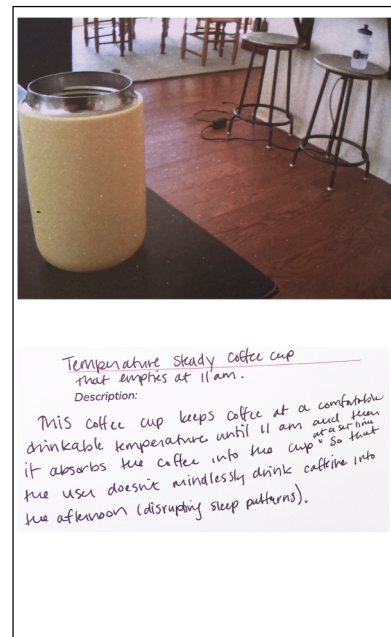 Temperature Steady Coffee cup
that empties at 11 am.
Description:
This coffee cup keeps coffee at a comfortable
drinkable temperature until 11 am and then
it absorbs the coffee into the cup at a set time so that
the user doesn't mindlessly drink caffeine into
the afternoon (disrupting sleep patterns).